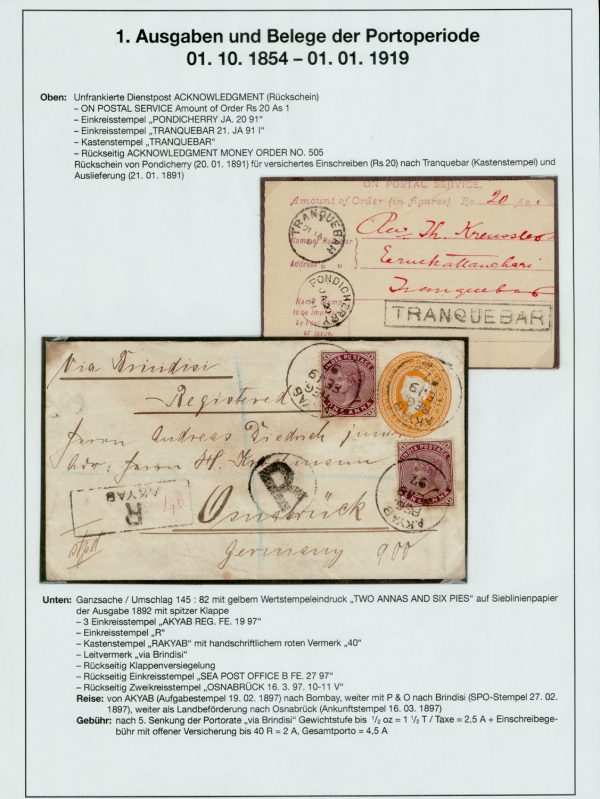 1. Ausgaben und Belege der Portoperiode
01. 10. 1854 – 01. 01. 1919
Oben: Unfrankierte Dienstpost ACKNOWLEDGMENT (Rückschein)
– ON POSTAL SERVICE Amount of Order Rs 20 As 1
– Einkreisstempel „PONDICHERRY JA. 20 91“
– Einkreisstempel „TRANQUEBAR 21. JA 91 I“
– Kastenstempel „TRANQUEBAR“
– Rückseitig ACKNOWLEDGMENT MONEY ORDER NO. 505
Rückschein von Pondicherry (20. 01. 1891) für versichertes Einschreiben (Rs 20) nach Tranquebar (Kastenstempel) und
Auslieferung (21. 01. 1891)
ON POSTAL SERVICE.
Amount of Order (in figures) Rs. 20
TRANQUEBAR
21 JA
Name of
Address
PONDICHERRY
JA 20
Name
to be
by Post
of
Rev. Th.
Tranquebar
TRANQUEBAR
Via Brindisi
Registered
INDIA POSTAGE
ONE ANNA
AKYAB
REG
FE 19
AKYAB
REG
19
Herrn Andreas Diedrich
Adr. Herrn H.
R
AKYAB
R
Osnabrück
INDIA POSTAGE
97
AKYAB
Germany 900
Unten: Ganzsache / Umschlag 145 : 82 mit gelbem Wertstempeleindruck „TWO ANNAS AND SIX PIES“ auf Sieblinienpapier
der Ausgabe 1892 mit spitzer Klappe
– 3 Einkreisstempel „AKYAB REG. FE. 19 97“
– Einkreisstempel „R“
– Kastenstempel „RAKYAB“ mit handschriftlichem roten Vermerk „40“
– Leitvermerk „via Brindisi“
– Rückseitig Klappenversiegelung
– Rückseitig Einkreisstempel „SEA POST OFFICE B FE. 27 97“
– Rückseitig Zweikreisstempel „OSNABRÜCK 16. 3. 97. 10-11 V“
Reise: von AKYAB (Aufgabestempel 19. 02. 1897) nach Bombay, weiter mit P & O nach Brindisi (SPO-Stempel 27. 02.
1897), weiter als Landbeförderung nach Osnabrück (Ankunftstempel 16. 03. 1897)
Gebühr: nach 5. Senkung der Portorate „via Brindisi“ Gewichtstufe bis 1/2 oz = 1 1/2 T / Taxe = 2,5 A + Einschreibege-
bühr mit offener Versicherung bis 40 R = 2 A, Gesamtporto = 4,5 A